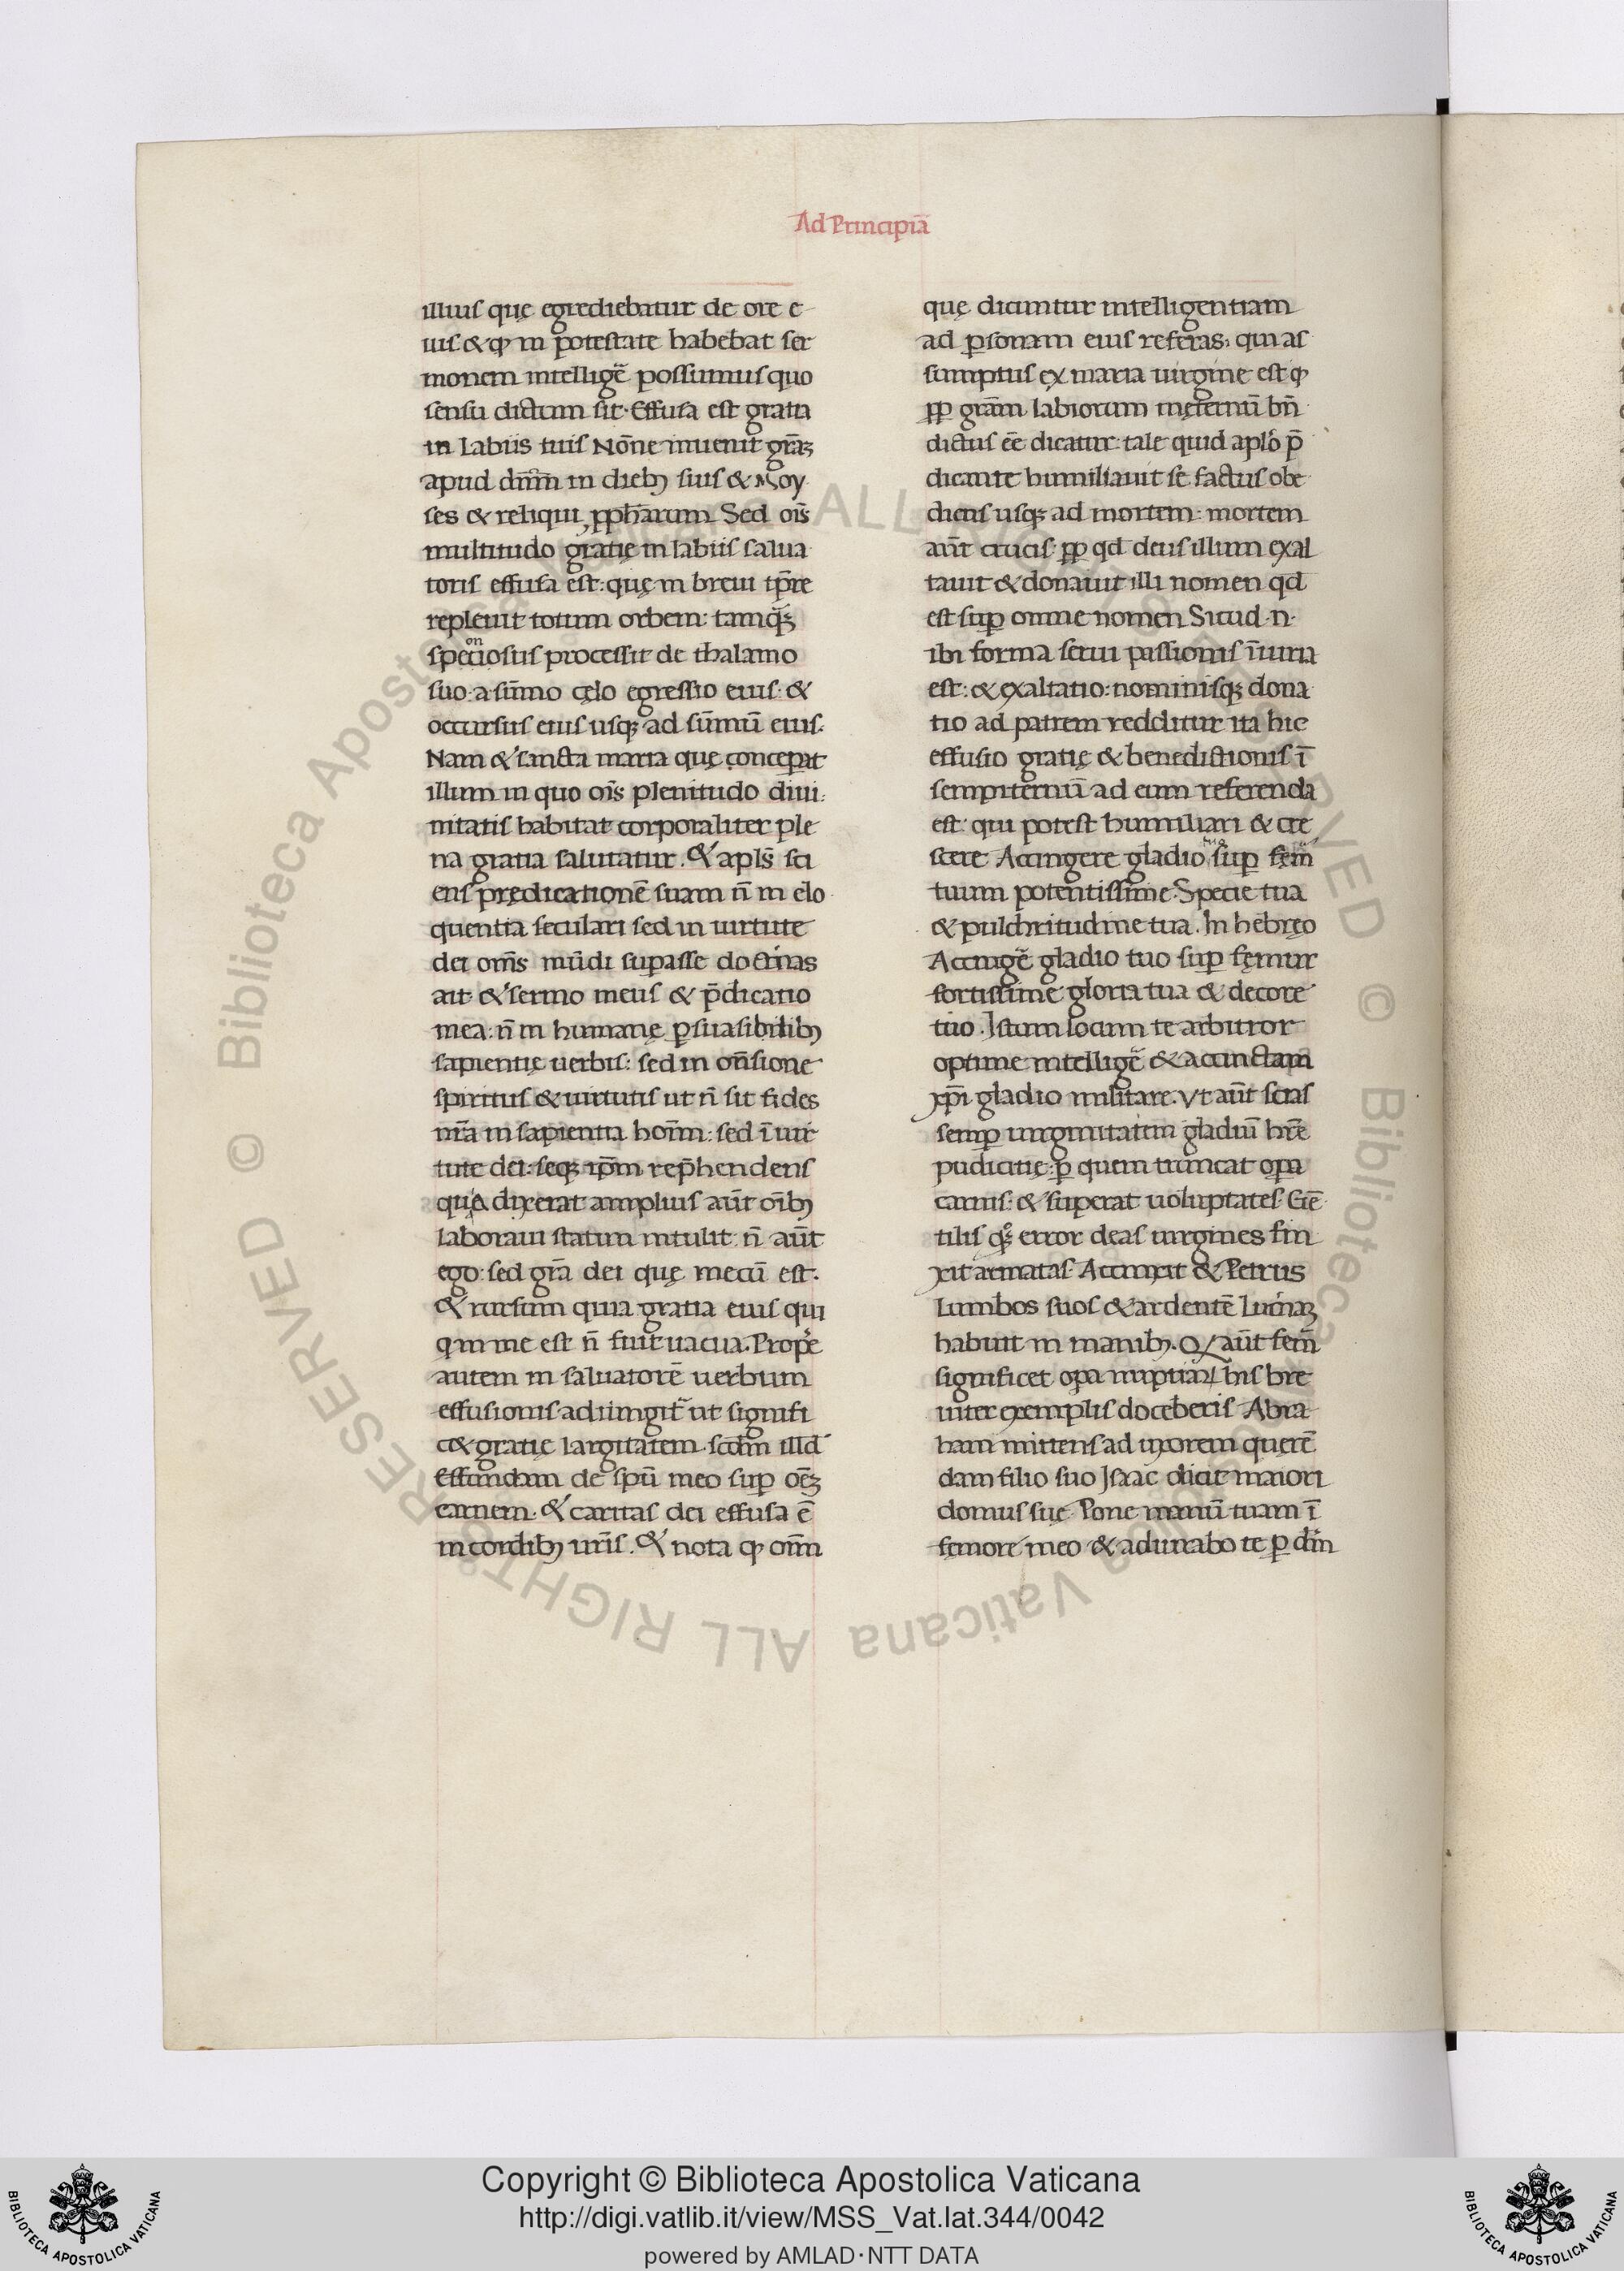 Ad Principiā
illius quę egrediebatur de ore e
ius: & ꝙ in potestate habebat ser
monem intelligē possumus quo
sensu dictum sit. Effusa est gratia
in labiis tuis Nōne inuenit grāꝫ
apud dn̄m in diebꝫ suis & Moy
ses & reliqui ꝓpħarum Sed oīs
multitudo gratię in labiis salua
toris effusa est: quę in breui tp̄re
repleuit totum orbem: tamqꝫ
speciosus processit de thalamo
on
suo. a sūmo cęlo egressio eius. &
occursus eius usqꝫ ad sūmū eius.
Nam & sancta maria quę conceꝑat
illum in quo oīs plenitudo diui
nitatis habitat corporaliter ple
na gratia salutatur. & apl̄s sci
ens predicationē suam n̄ in elo
quentia seculari sed in uirtute
dei om̄s mūdi suꝑasse doctrinas
ait & sermo meus & p̄dicatio
mea: n̄ in humanę ꝑsuasibilibꝫ
sapientię uerbis: sed in on̄sione
spiritus & uirtutis ut n̄ sit fides
nr̄a in sapientia hoīm: sed ī uir
tute dei: seqꝫ ip̄m rep̄hendens
quia dixerat amplius aūt oībꝫ
laboraui statim intulit. n̄ aūt
ego: sed grā dei quę mecū est.
& rursum quia gratia eius qui
q̇ in me est n̄ fuit uacua. Propē
autem in saluatorē uerbum
effusionis adiungit᷑ ut signifi
c& gratię largitatem. scdm illd
Effundam de spū meo suꝑ oēꝫ
carnem. & caritas dei effusa ē
in cordibꝫ nr̄is. & nota ꝙ om̄
quę dicuntur intelligentiam
ad ꝑsonam eius referas: qui as
sumptus ex maria uirgine est ꝙ
ꝓp grām labiorum in ęternū bn̄
dictus eē dicatur: tale quid aplo p̄
dicante humiliauit se factus obe
diens usqꝫ ad mortem: mortem
aūt crucis ꝓp qd deus illum exal
tauit & donauit illi nomen qd
est suꝑ omne nomen Sicud .n.
ibi forma serui passionis īiuria
est: & exaltatio: nominisqꝫ dona
tio ad patrem redditur ita hic
effusio gratię & benedictionis ī
sempiternū ad eum referenda
est: qui potest humiliari & cre
scere Accingere gladio suꝑ fem̄
tuum potentissime. Specie tua
& pulchritudine tua. In hebręo
Accingē gladio tuo suꝑ fęmur
fortissime gloria tua & decore
tuo. Istum locum te arbitror
optime intelligē & accinctam
xp̄i gladio militare. Vt aūt scias
semꝑ uirginitatem gladiū hr̄e
pudicitię: ꝑ quem truncat oꝑa
carnis: & superat uoluptates. Gē
tilis qꝫ error deas uirgines fin
xit armatas. Accinxit & Petrus
Lumbos suos & ardentē lucernaꝫ
habuit in manibꝫ. Q aūt fem̄
significet oꝑa nuptiaꝝ his bre
uiter exemplis doceberis. Abra
ham mittens ad uxorem querē
dam filio suo Isaac dicit maiori
domus suę Pone manū tuam ī
femore meo & adiurabo te ꝑ dm̄
Copyright © Biblioteca Apostolica Vaticana
http://digi.vatlib.it/view/MSS_Vat.lat.344/0042
powered by AMLAD·NTT DATA